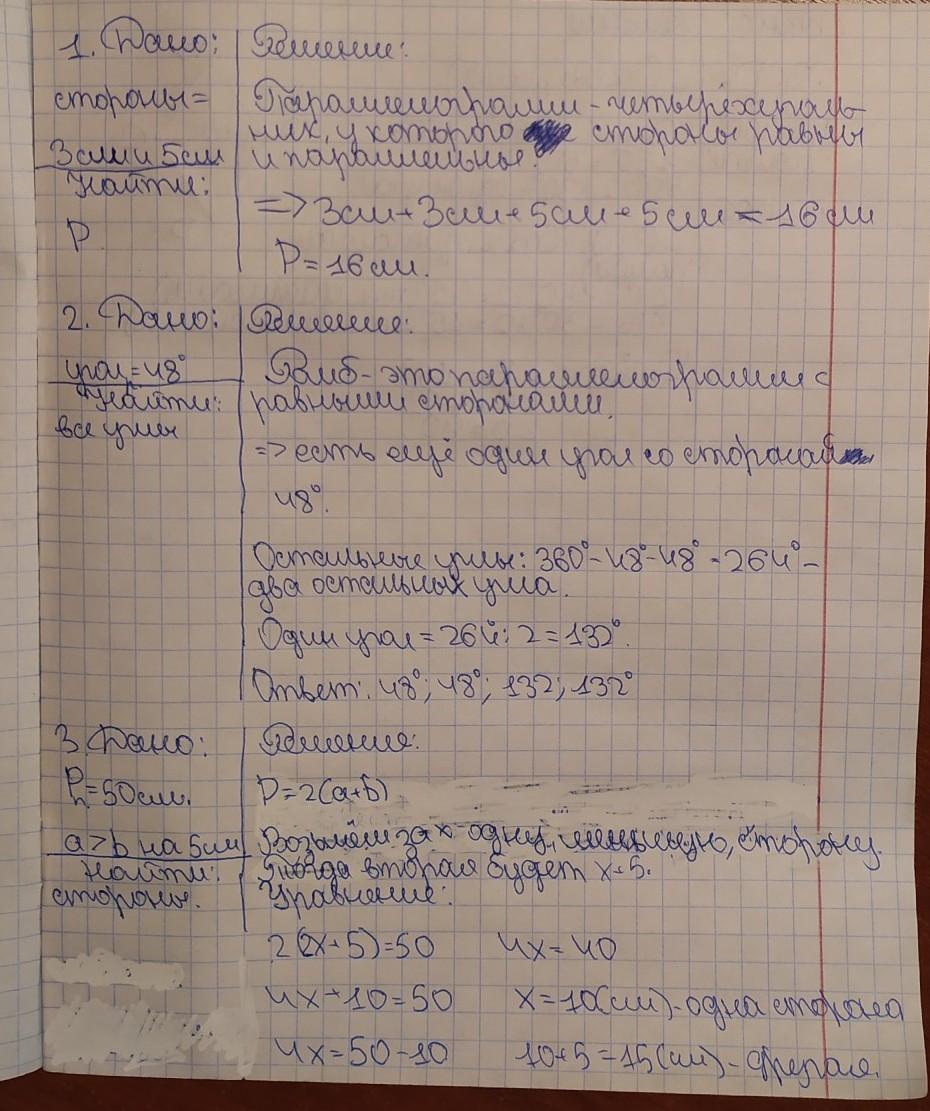 1. Дано: Решение:
стороны =
3см и 5см
Найти:
P
Параллелограмм - четырёхуголь-
ник, у которого стороны равны
и параллельные.
=> 3см + 3см + 5см + 5см = 16см
P = 16см.
2. Дано: Решение:
угол = 48°
Найти:
все углы
Ромб - это параллелограмм с
равными сторонами.
=> есть ещё один угол со стороной
48°.
Остальные углы: 360° - 48° - 48° = 264° -
два остальных угла.
Один угол = 264 : 2 = 132°.
Ответ: 48°; 48°; 132; 132°
3. Дано: Решение:
P = 50см.
a > b на 5см
Найти:
стороны.
P = 2(a+b)
Возьмём за x одну, меньшую, сторону.
Тогда вторая будет x + 5.
Уравнение:
2(2x + 5) = 50 4x = 40
4x + 10 = 50 x = 10(см) - одна сторона
4x = 50 - 10 10 + 5 = 15(см) - другая.